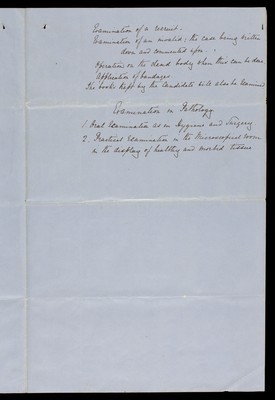 Examination of a recruit.
Examination of an invalid; the case being written
down and commented upon.
Operation on the dead body when this can be done
Application of bandages.
The books kept by the Candidate will also be examined
Examination in Pathology
1. Oral Examination as in Hygiene and Surgery.
2. Practical Examination in the Microscopical room
in the display of healthy and morbid tissue